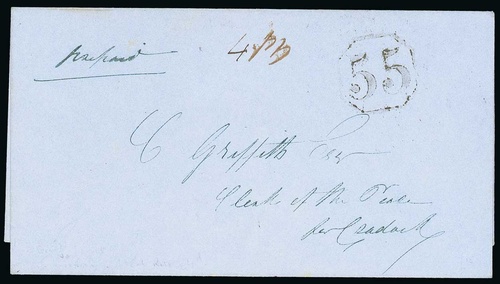 prepaid
55
C Griffith Esqr
Clerk of the Peace
for Cradock